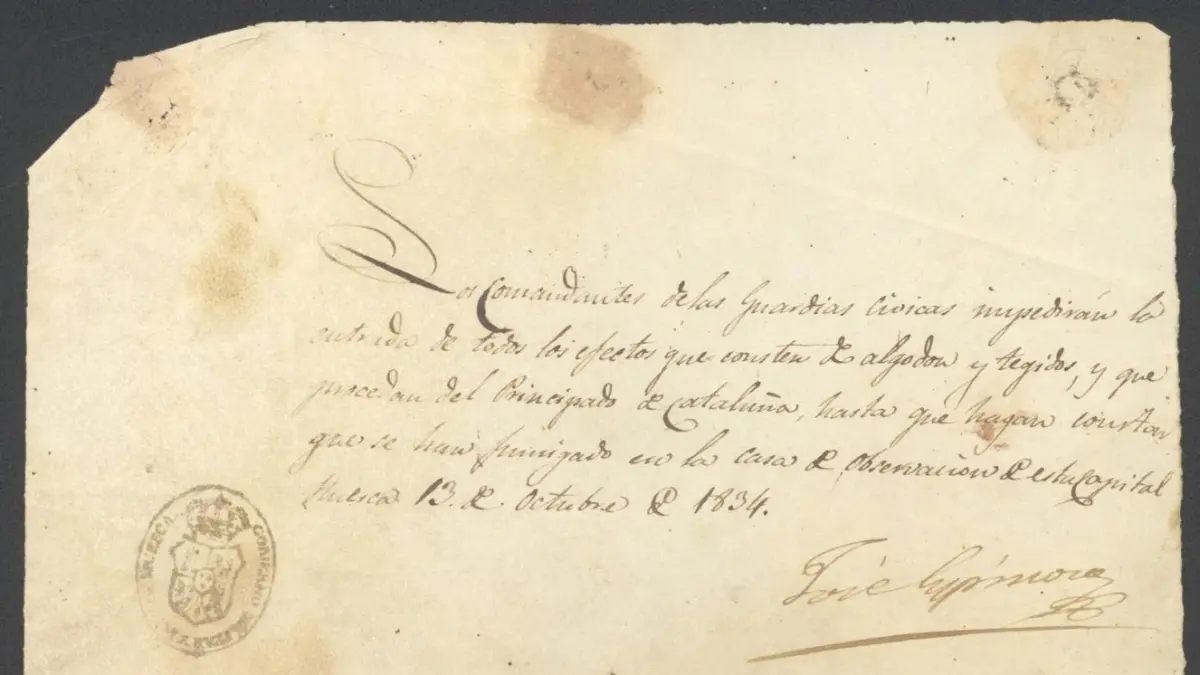 Los Comandantes de las Guardias Civicas impedirán la
entrada de todos los efectos que consten de algodon y tegidos, y que
procedan del Principado de Cataluña, hasta que hagan constar
que se han fumigado en la casa de observacion de esta Capital
Huesca 13. de Octubre de 1834.
José Espinosa
HUESCA GOBIERNO